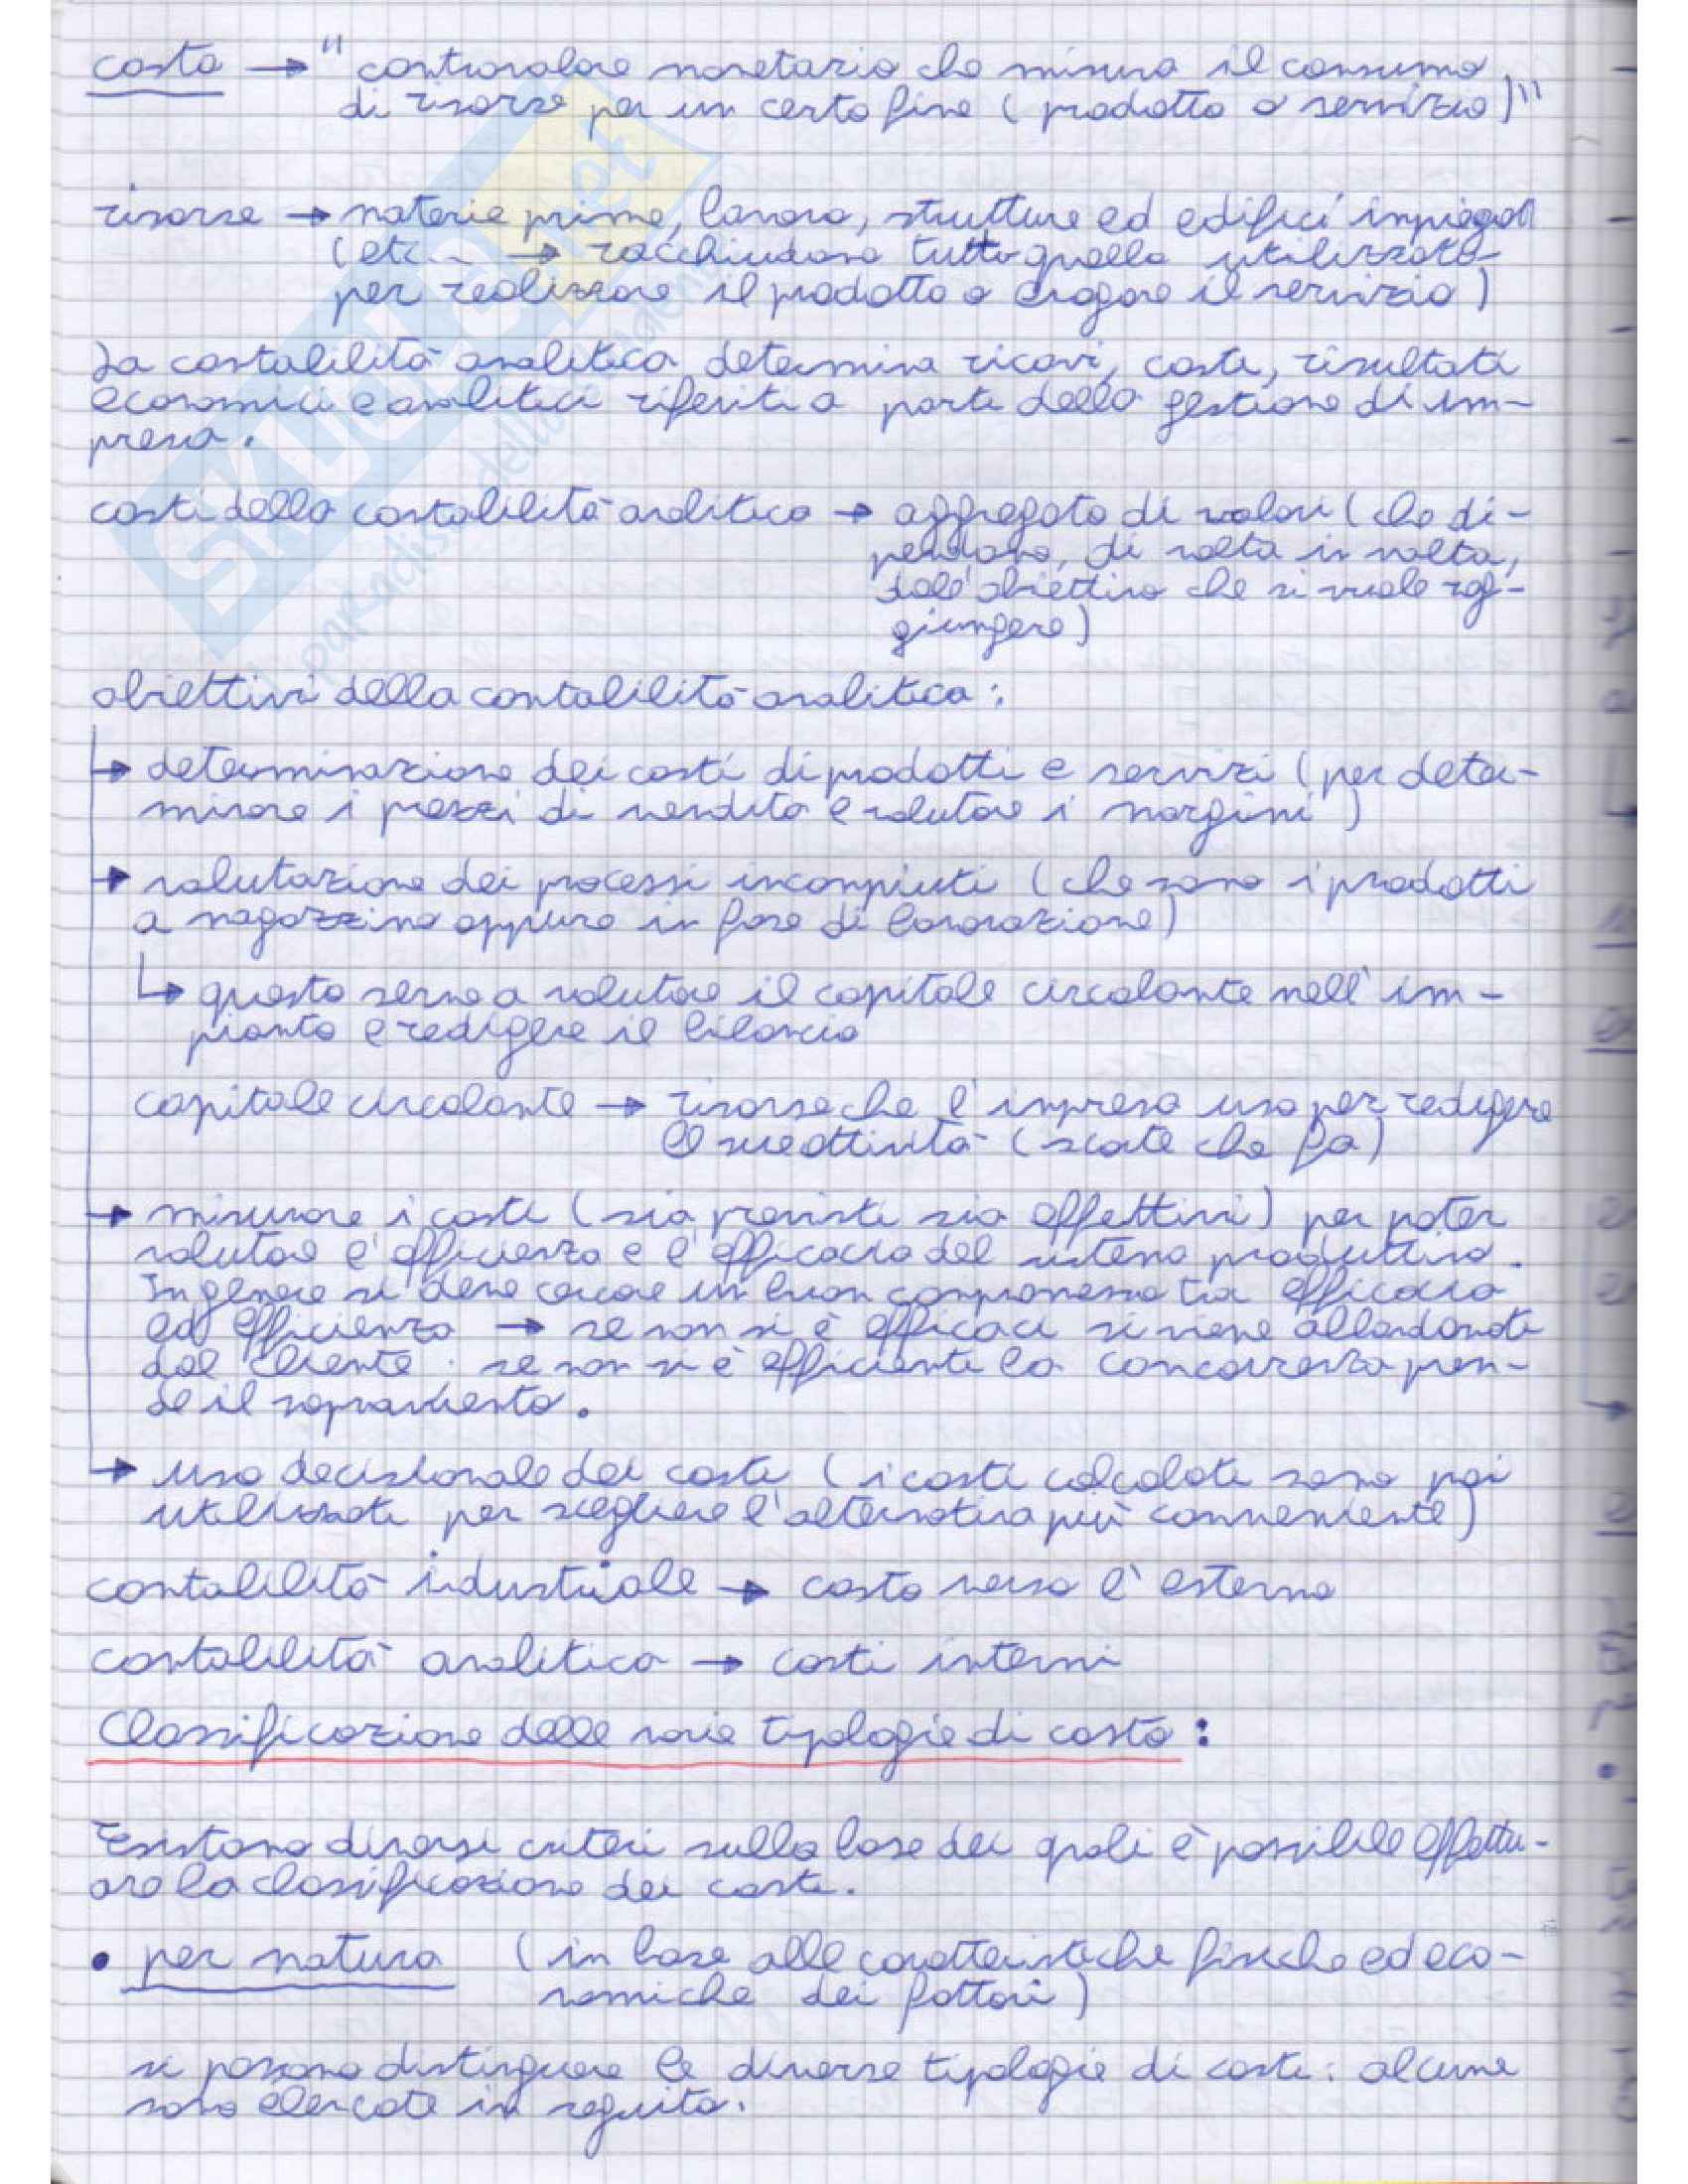 costo → "controvalore monetario che misura il consumo
di risorse per un certo fine (prodotto o servizio)"
risorse → materie prime, lavoro, strutture ed edifici impiegati
(etc... → racchiudono tutto quello utilizzato
per realizzare il prodotto o erogare il servizio)
La contabilità analitica determina ricavi, costi, risultati
economici e analitici riferiti a parti della gestione di im-
presa.
costi della contabilità analitica → aggregato di valori (che di-
pendono, di volta in volta,
dall'obiettivo che si vuole rag-
giungere)
obiettivi della contabilità analitica:
→ determinazione dei costi di prodotti e servizi (per deter-
minare i prezzi di vendita e valutare i margini)
→ valutazione dei processi incompiuti (che sono i prodotti
a magazzino oppure in fase di lavorazione)
↳ questo serve a valutare il capitale circolante nell'im-
pianto e redigere il bilancio
capitale circolante → risorse che l'impresa usa per redigere
le sue attività (scorte che fa)
→ misurare i costi (sia previsti sia effettivi) per poter
valutare l'efficienza e l'efficacia del sistema produttivo.
In genere si deve cercare un buon compromesso tra efficacia
ed efficienza → se non si è efficaci si viene abbandonati
dal cliente. se non si è efficienti la concorrenza pren-
de il sopravvento.
→ uso decisionale dei costi (i costi calcolati sono poi
utilizzati per scegliere l'alternativa più conveniente)
contabilità industriale → costo verso l'esterno
contabilità analitica → costi interni
Classificazione delle varie tipologie di costo:
Esistono diversi criteri sulla base dei quali è possibile effettu-
are la classificazione dei costi.
• per natura (in base alle caratteristiche fisiche ed eco-
nomiche dei fattori)
si possono distinguere le diverse tipologie di costi: alcune
sono elencate in seguito.
SKUOLA.net
il paradiso dello studente